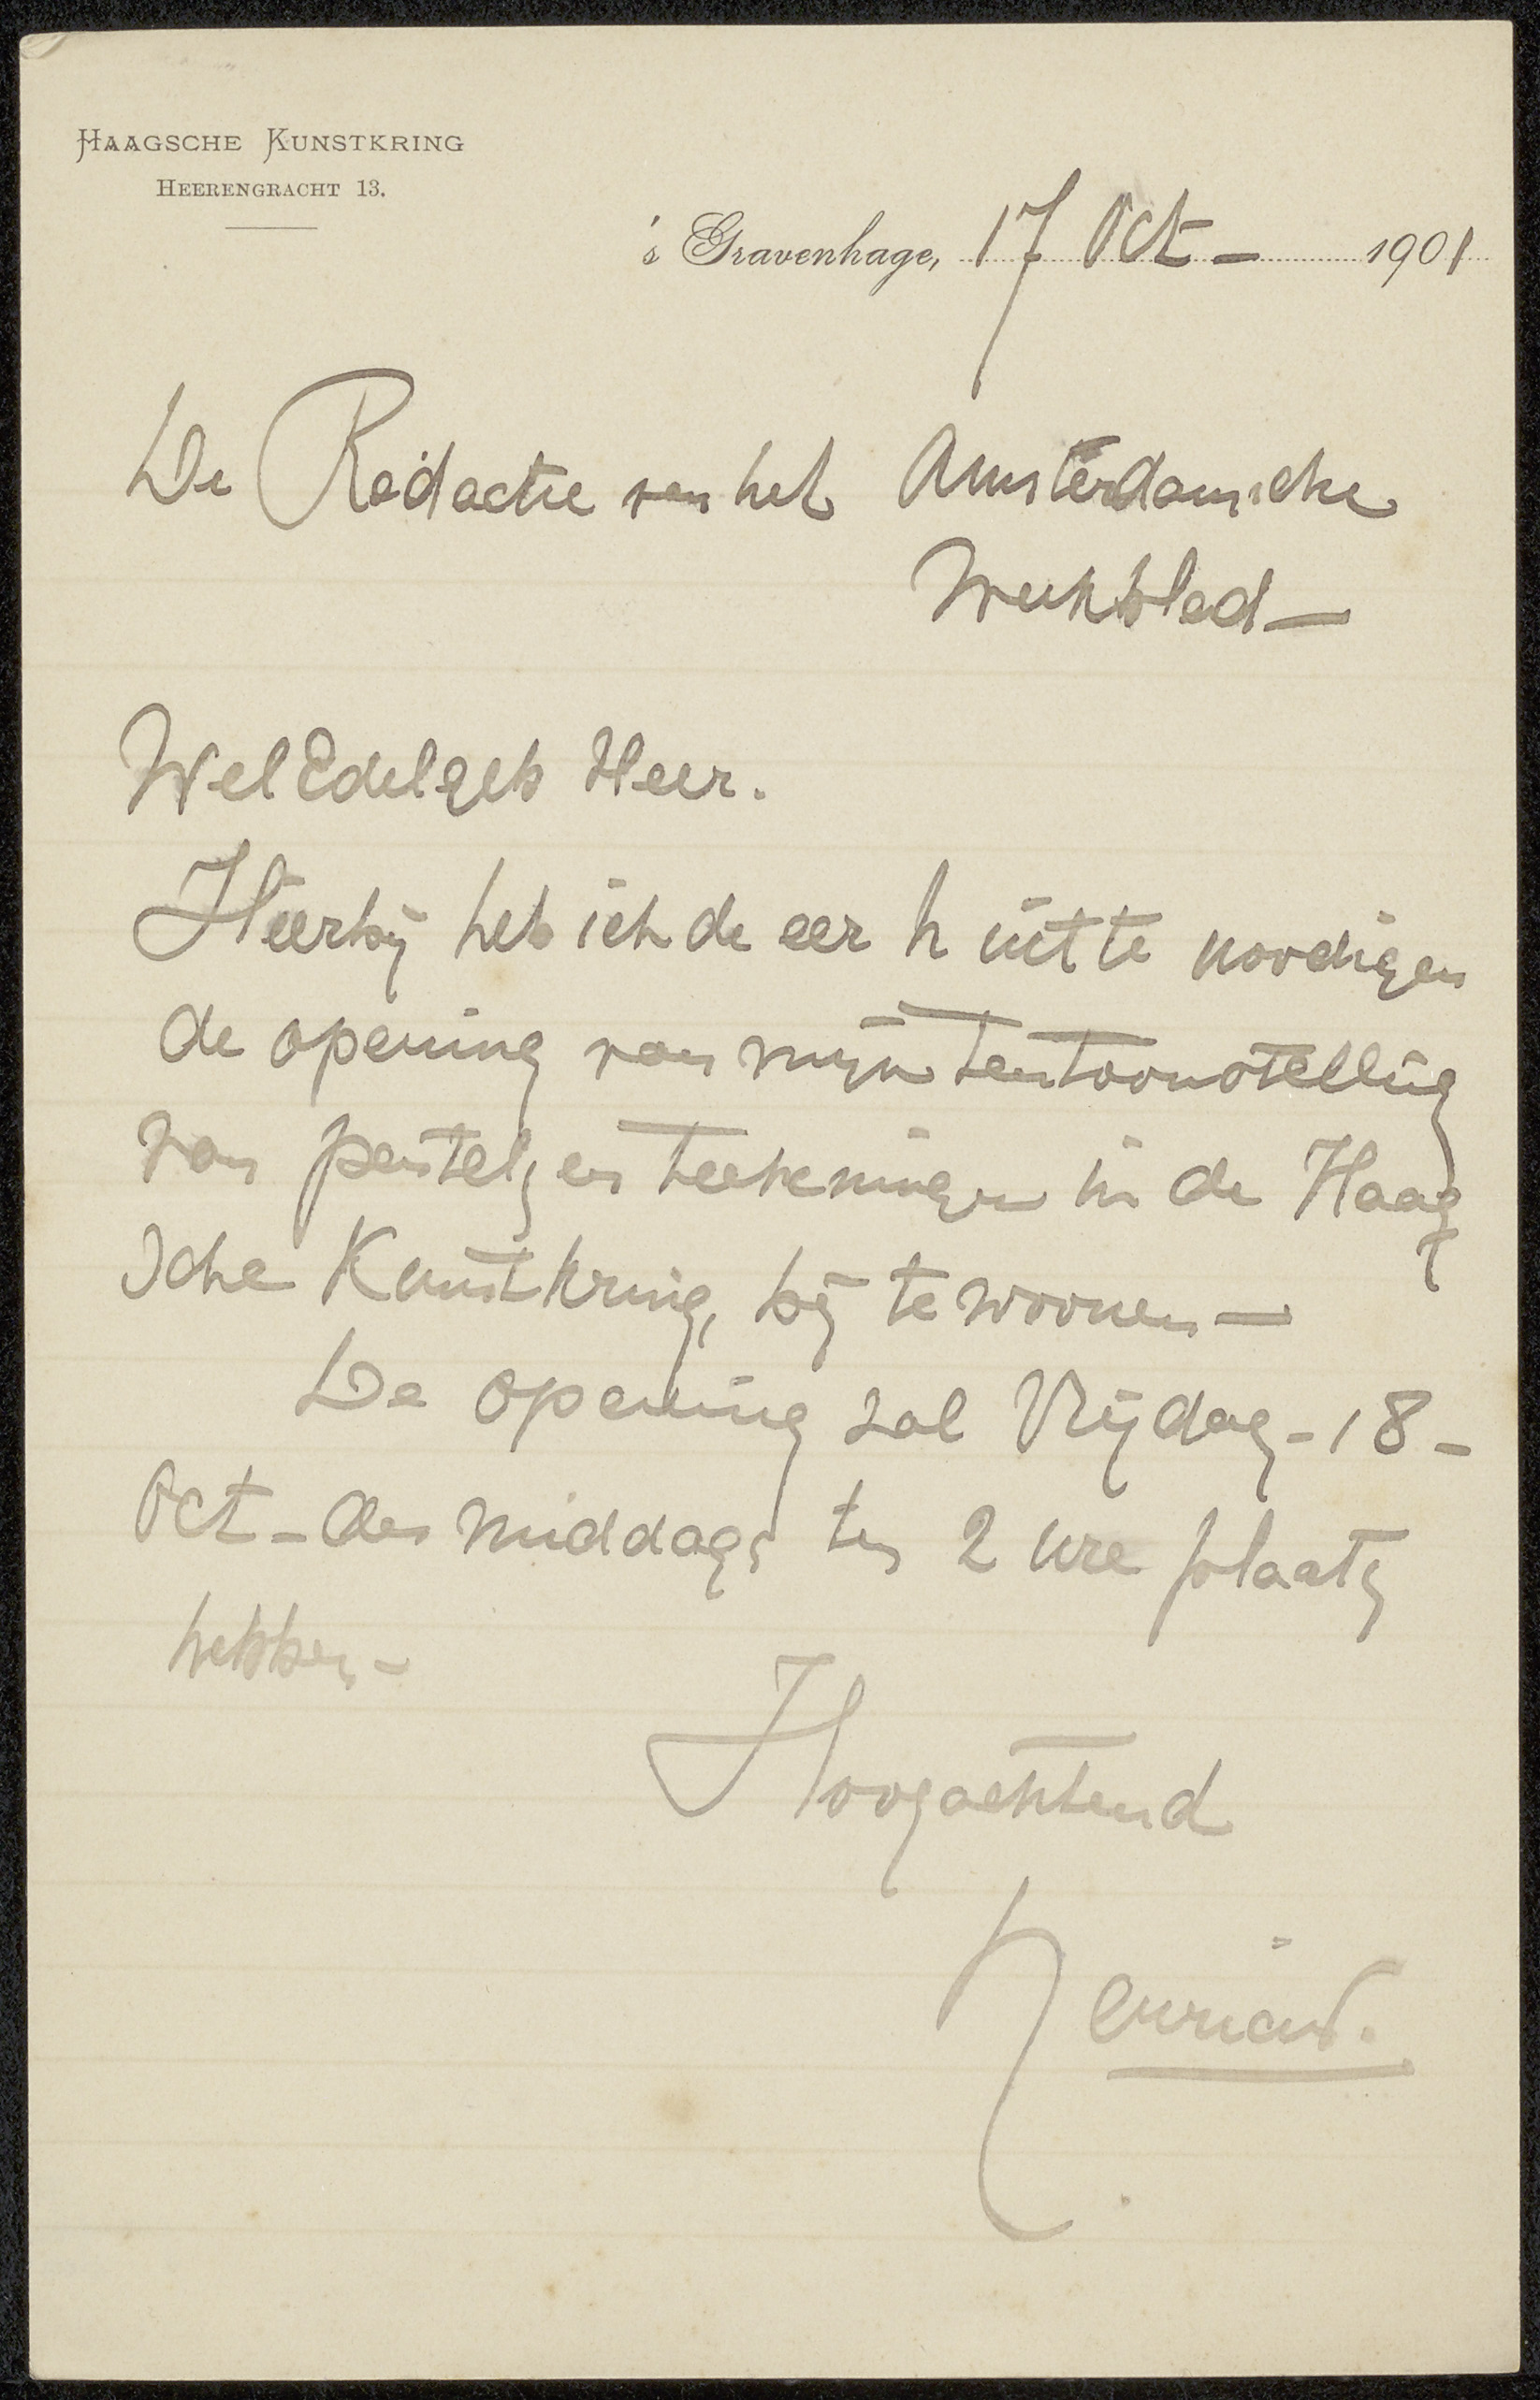 HAAGSCHE KUNSTKRING
HEERENGRACHT 13.
's Gravenhage, 17 Oct - 1901
De Redactie van het Amsterdamsche
Weekblad -
WelEdelgeb Heer.
Hierbij heb ich de eer U uit te noodigen
de opening van mijn tentoonstelling
van pastels en teekeningen in de Haag
sche Kunstkring, bij te woonen -
De opening zal Vrijdag - 18 -
Oct - des middags ten 2 ure plaats
hebben -
Hoogachtend
Henricus.